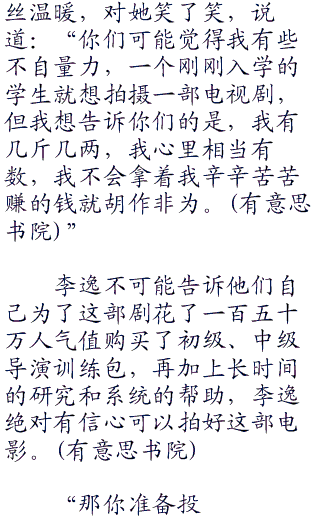 丝温暖，对她笑了笑，说
道：“你们可能觉得我有些
不自量力，一个刚刚入学的
学生就想拍摄一部电视剧，
但我想告诉你们的是，我有
几斤几两，我心里相当有
数，我不会拿着我辛辛苦苦
赚的钱就胡作非为。(有意思
书院)”
李逸不可能告诉他们自
己为了这部剧花了一百五十
万人气值购买了初级、中级
导演训练包，再加上长时间
的研究和系统的帮助，李逸
绝对有信心可以拍好这部电
影。(有意思书院)
“那你准备投